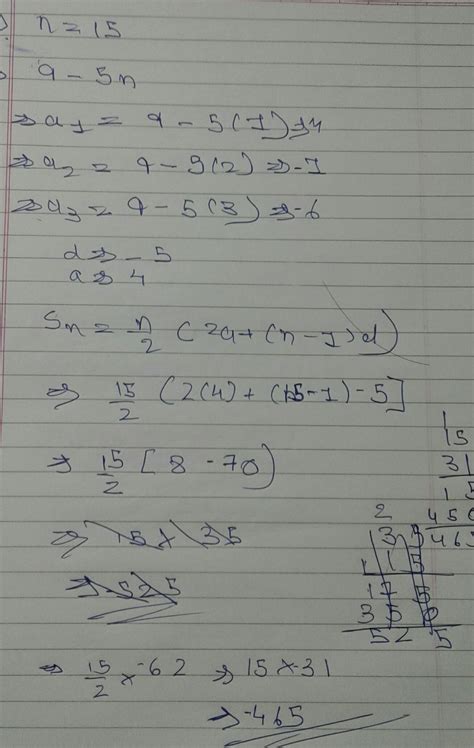 n = 15
9 - 5n
⇒ a1 = 9 - 5(1) ⇒ 4
⇒ a2 = 9 - 5(2) ⇒ -1
⇒ a3 = 9 - 5(3) ⇒ -6
d ⇒ - 5
a ⇒ 4
Sn = n/2 (2a + (n - 1) d)
⇒ 15/2 (2(4) + (15 - 1) - 5]
⇒ 15/2 [8 - 70)
⇒ -15 × 35
⇒ -525
⇒ 15/2 × -62 ⇒ 15 × -31
⇒ -465
15
31
15
450
465
2
35
15
175
350
525